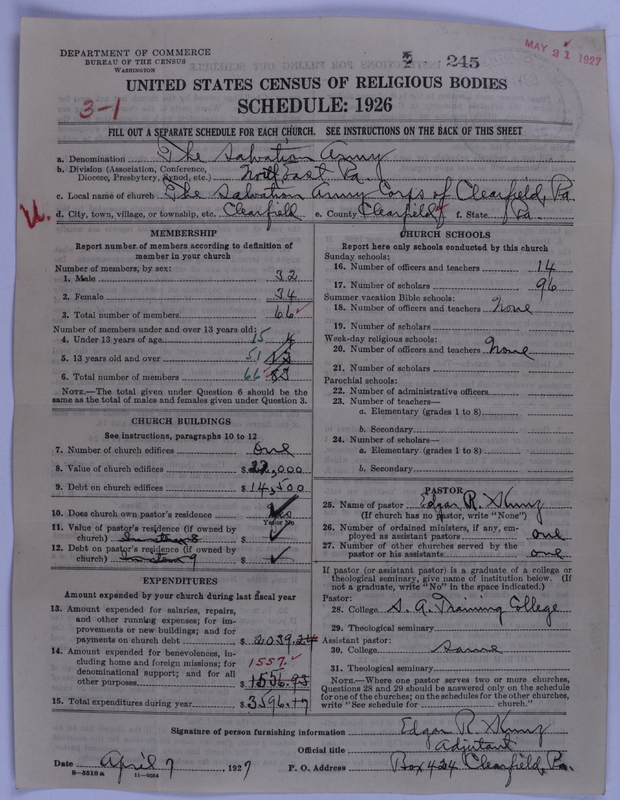 DEPARTMENT OF COMMERCE
BUREAU OF THE CENSUS
WASHINGTON
245
MAY 21 1927
UNITED STATES CENSUS OF RELIGIOUS BODIES
3-1
SCHEDULE: 1926
FILL OUT A SEPARATE SCHEDULE FOR EACH CHURCH. SEE INSTRUCTIONS ON THE BACK OF THIS SHEET
a. Denomination The Salvation Army
b. Division (Association, Conference, Diocese, Presbytery, Synod, etc.) North East Pa.
c. Local name of church The Salvation Army Corps of Clearfield, Pa.
d. City, town, village, or township, etc. Clearfield e. County Clearfield f. State Pa.
MEMBERSHIP
Report number of members according to definition of
member in your church
Number of members, by sex:
1. Male 32
2. Female 34
3. Total number of members 66
Number of members under and over 13 years old:
4. Under 13 years of age 15
5. 13 years old and over 51
6. Total number of members 66
NOTE.—The total given under Question 6 should be the
same as the total of males and females given under Question 3.
CHURCH BUILDINGS
See instructions, paragraphs 10 to 12
7. Number of church edifices One
8. Value of church edifices $ 22,000
9. Debt on church edifices $ 14,500
10. Does church own pastor's residence
Yes or No
11. Value of pastor's residence (if owned by
church) $
12. Debt on pastor's residence (if owned by
church) $
EXPENDITURES
Amount expended by your church during last fiscal year
13. Amount expended for salaries, repairs,
and other running expenses; for im-
provements or new buildings; and for
payments on church debt $ 2039.24
14. Amount expended for benevolences, in-
cluding home and foreign missions; for 1557.
denominational support; and for all
other purposes $ 1556.93
15. Total expenditures during year $ 3596.17
CHURCH SCHOOLS
Report here only schools conducted by this church
Sunday schools:
16. Number of officers and teachers 14
17. Number of scholars 96
Summer vacation Bible schools:
18. Number of officers and teachers None
19. Number of scholars
Week-day religious schools:
20. Number of officers and teachers None
21. Number of scholars
Parochial schools:
22. Number of administrative officers
23. Number of teachers—
a. Elementary (grades 1 to 8)
b. Secondary
24. Number of scholars—
a. Elementary (grades 1 to 8)
b. Secondary
PASTOR
25. Name of pastor Edgar R.
(If church has no pastor, write "None")
26. Number of ordained ministers, if any, em-
ployed as assistant pastors one
27. Number of other churches served by the
pastor or his assistants one
If pastor (or assistant pastor) is a graduate of a college or
theological seminary, give name of institution below. (If
not a graduate, write "No" in the space indicated.)
Pastor:
28. College S. A. Training College
29. Theological seminary
Assistant pastor:
30. College same
31. Theological seminary
NOTE.—Where one pastor serves two or more churches,
Questions 28 and 29 should be answered only on the schedule
for one of the churches; on the schedules for the other churches,
write "See schedule for church."
Signature of person furnishing information Edgar R.
Official title Adjutant
Date April 7, 1927 P. O. Address Box 424 Clearfield, Pa.
8—5519 a 11—9064